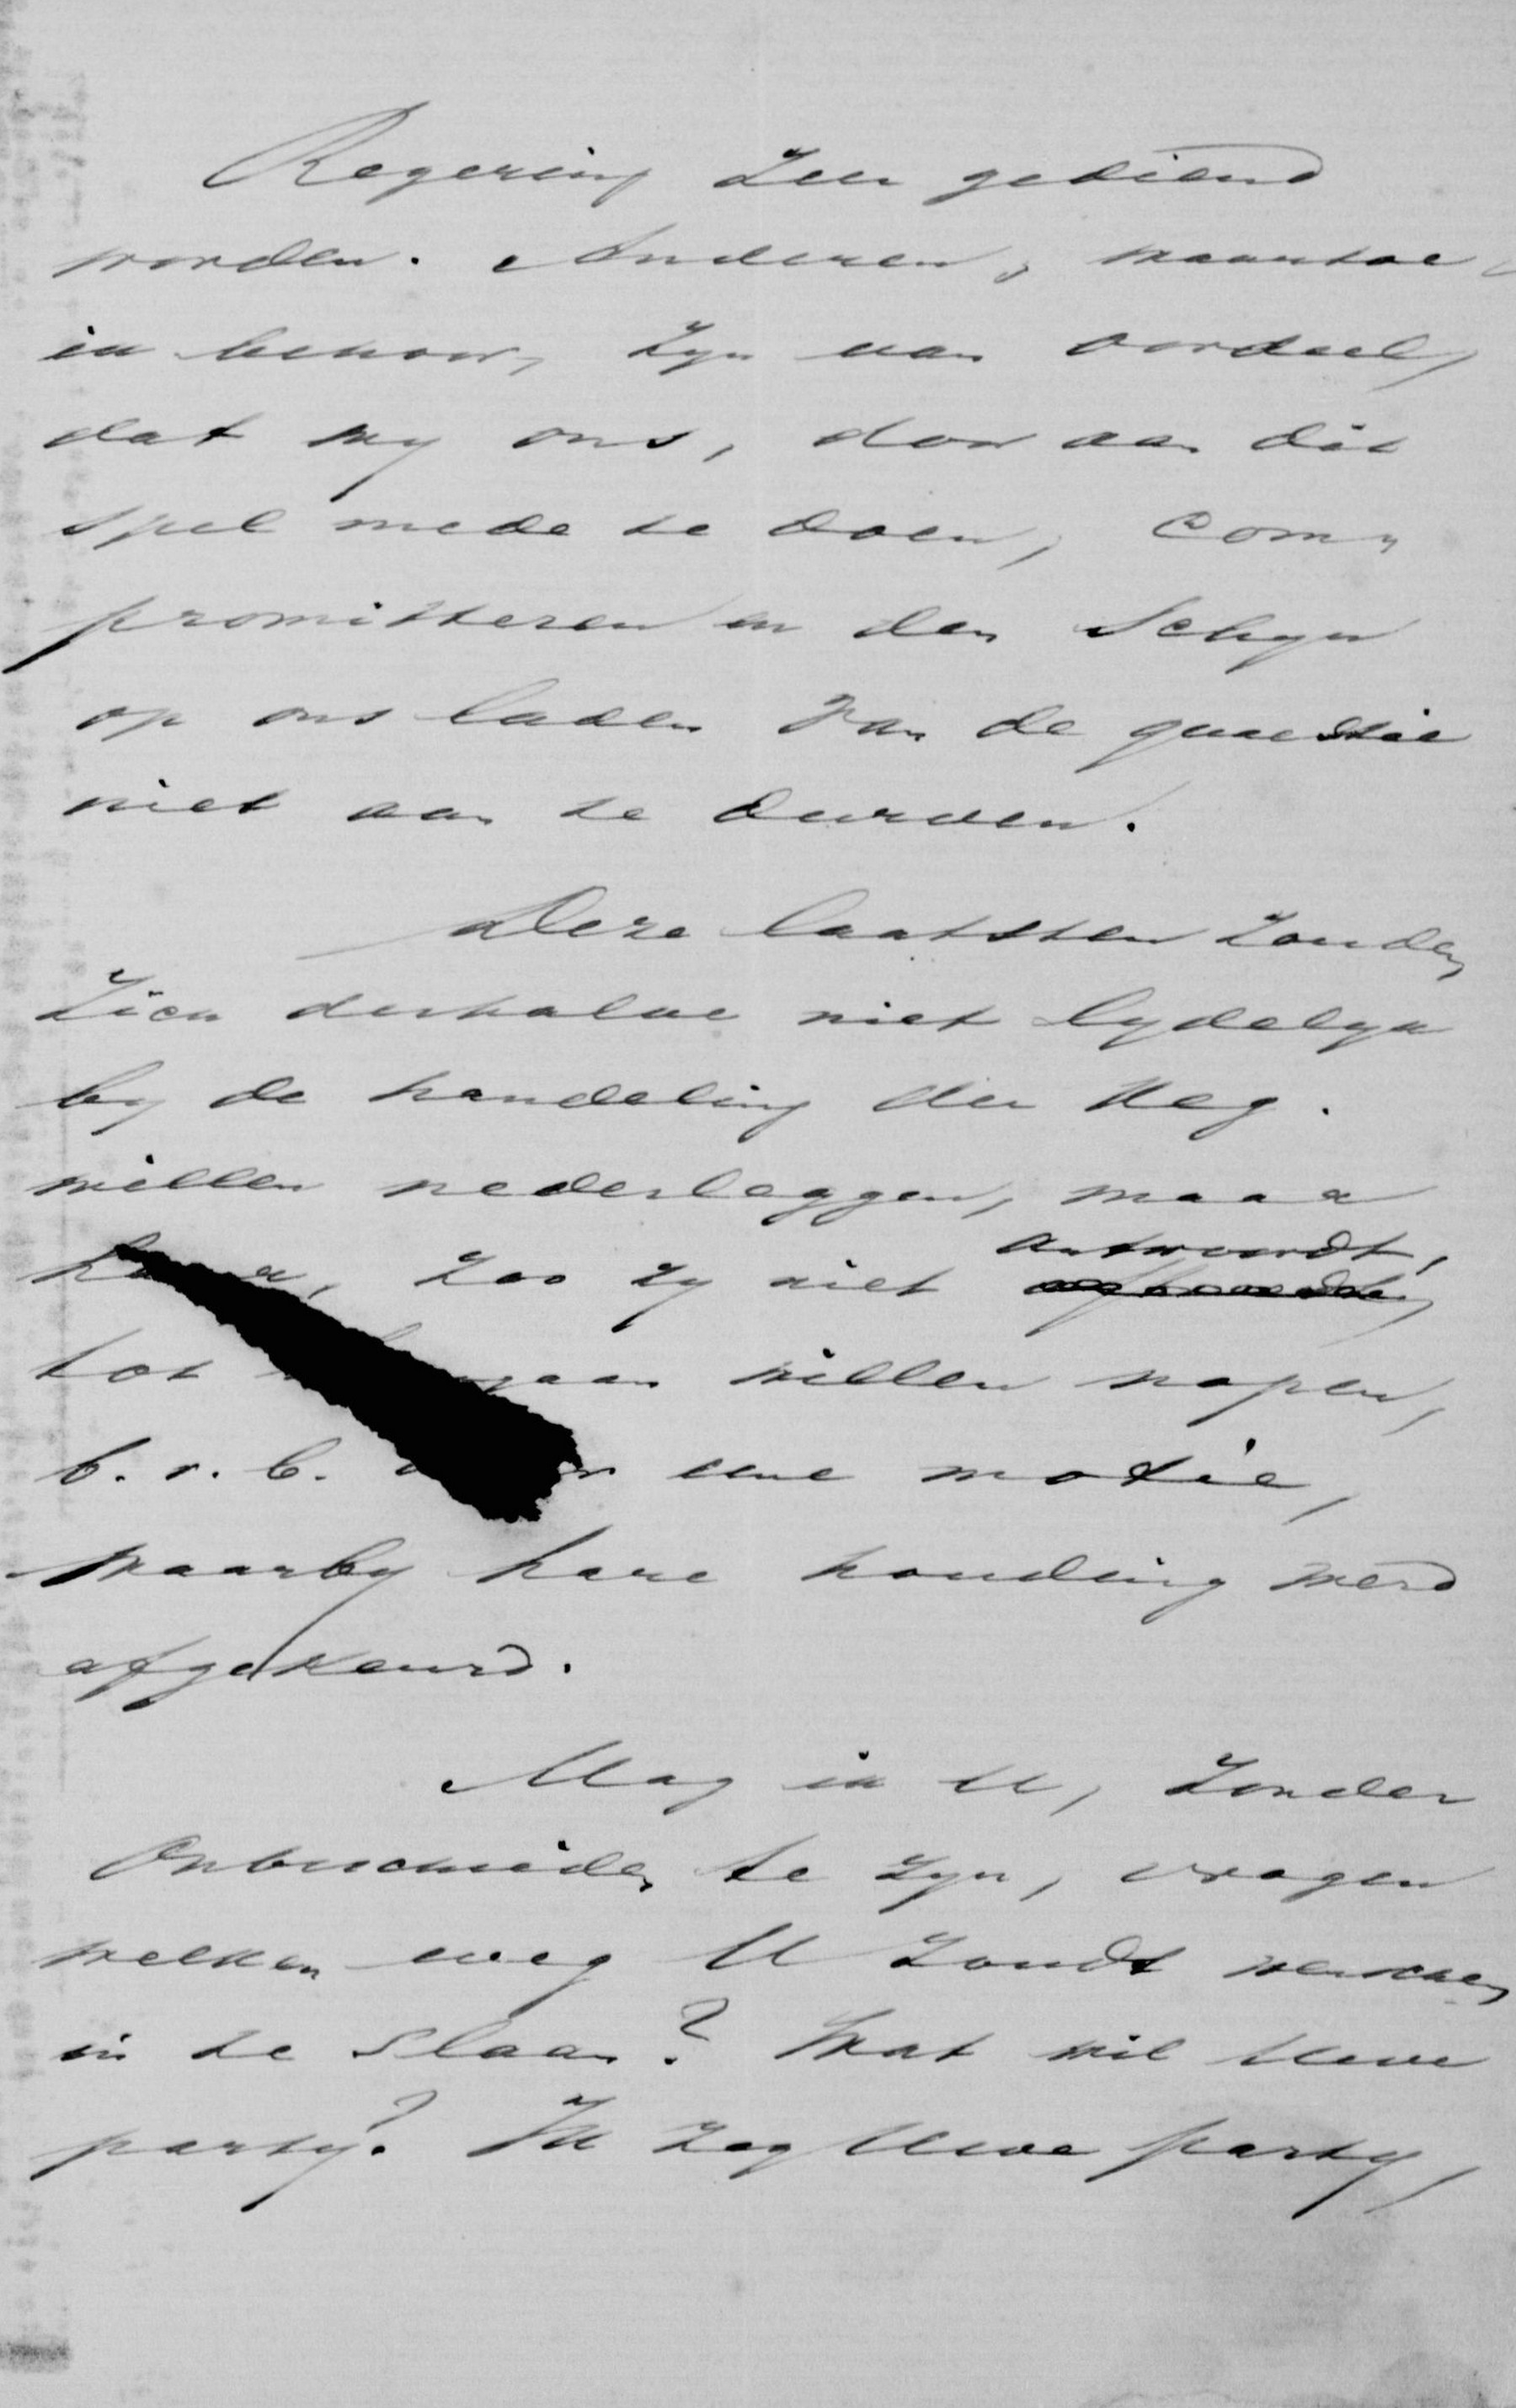 Regering zeer gediend
worden. Anderen, waartoe
ik behoor, zyn van oordeel,
dat wy ons, door aan dit
spel mede te doen, com-
promitteren en den schyn
op ons laden van de quaestie
niet aan te durven.
Deze laatsten zouden
zich derhalve niet lydelyk
by de handeling der Reg.
willen nederleggen, maar
zoo zy niet antwoordt,
tot willen nopen,
b.v. b. eene motie,
waarby hare houding werd
afgekeurd.
Mag ik U, zonder
onbescheiden te zyn, vragen
welken weg U zoudt wenschen
in te slaan? Wat wil Uwe
party? Ik zeg Uwe party,